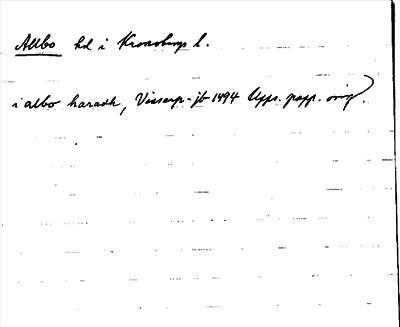 Allbo hd i Kronobergs l.
i albo haradh, Vissarp-jb 1494 Upps. papp. orig.